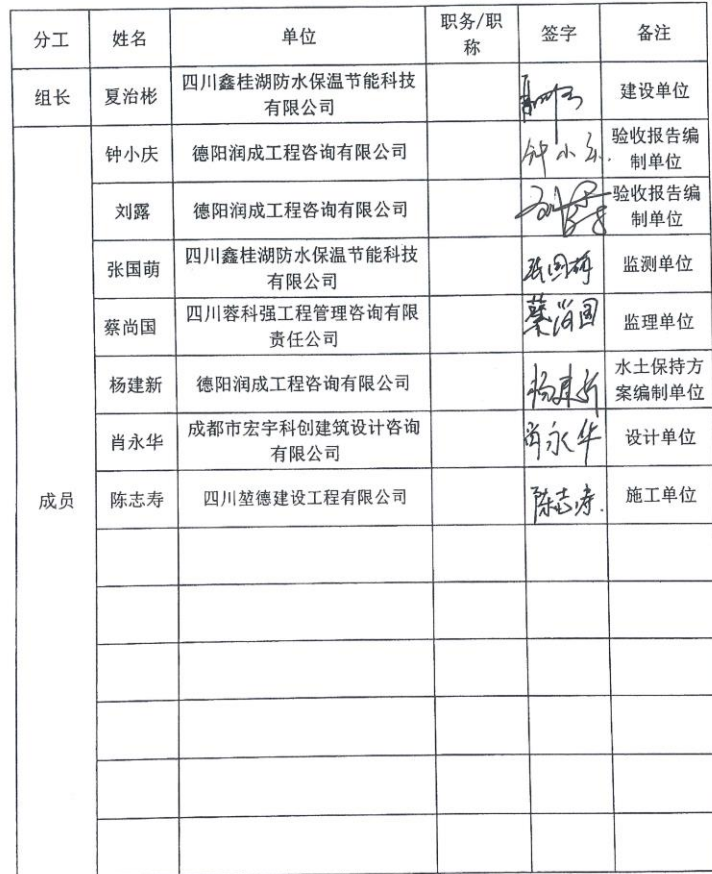 分工 姓名 单位 职务/职称 签字 备注
组长 夏治彬 四川鑫桂湖防水保温节能科技有限公司 建设单位
成员 钟小庆 德阳润成工程咨询有限公司 钟小庆 验收报告编制单位
刘露 德阳润成工程咨询有限公司 刘露 验收报告编制单位
张国萌 四川鑫桂湖防水保温节能科技有限公司 张国萌 监测单位
蔡尚国 四川蓉科强工程管理咨询有限责任公司 蔡尚国 监理单位
杨建新 德阳润成工程咨询有限公司 杨建新 水土保持方案编制单位
肖永华 成都市宏宇科创建筑设计咨询有限公司 肖永华 设计单位
陈志寿 四川堃德建设工程有限公司 陈志寿 施工单位